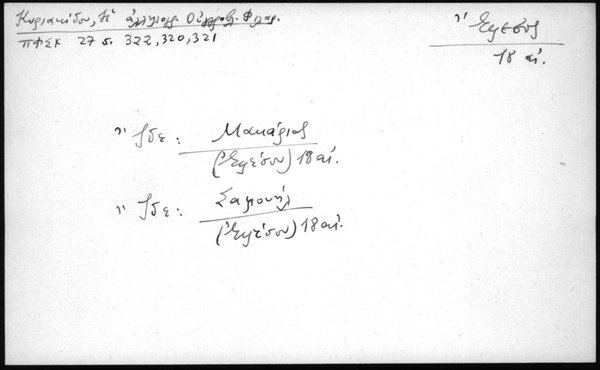 Κυριακίδου, Ἡ ἀλληλογρ. Οὐγγροβλ. Φλαγ.
ΠΦΣΚ 27 σ. 322, 320, 321
Ἔφεσος
18 αἰ.
Ἴδε: Μακάριος
(Ἐφέσου) 18 αἰ.
Ἴδε: Σαμουήλ
(Ἐφέσου) 18 αἰ.